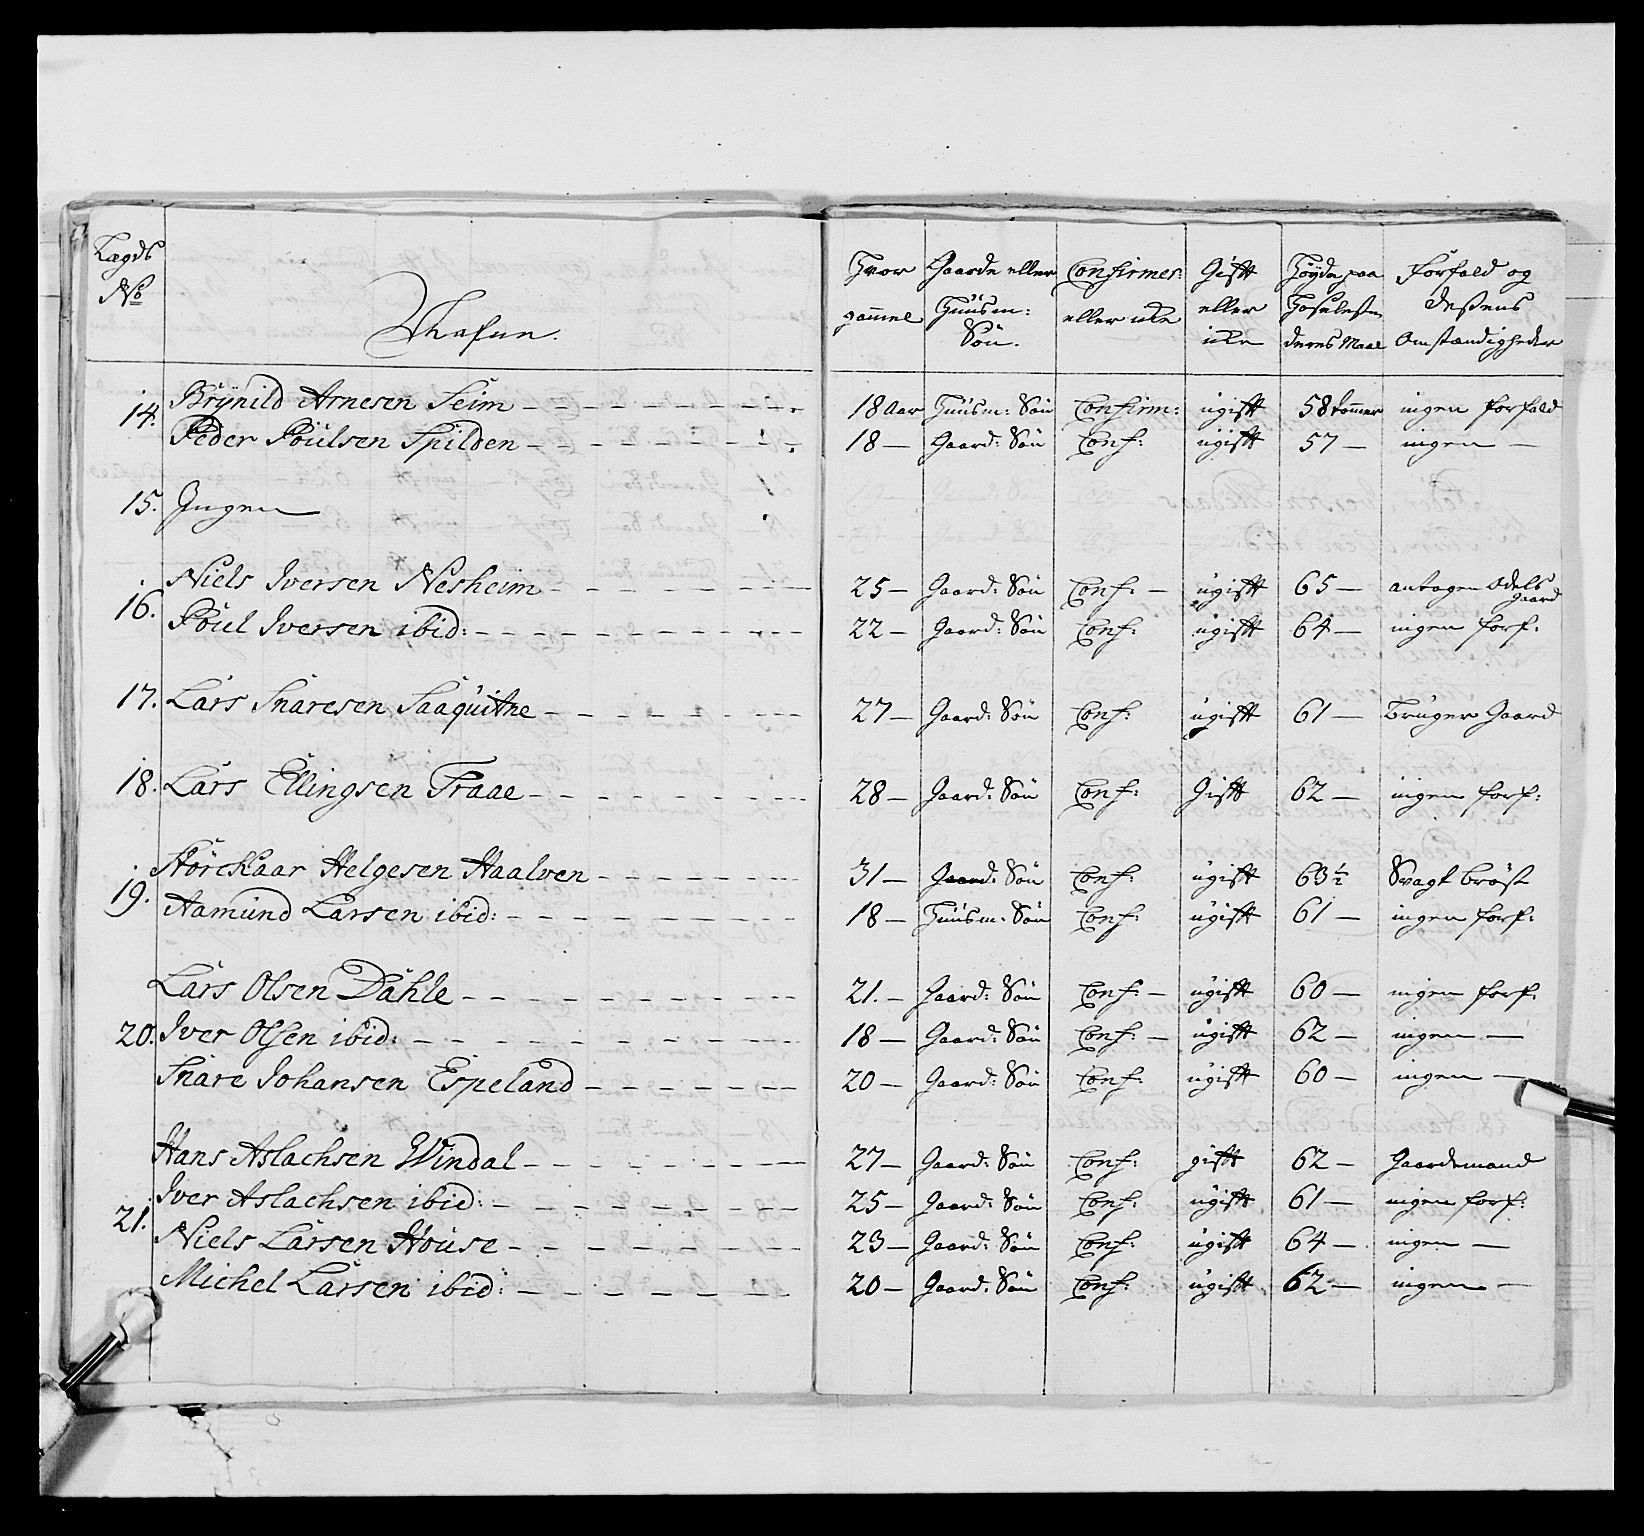 Lægds No | Nafnn. | Hvor gammel | Gaards eller Huusm: Søn. | Confirmer: eller icke | Gift eller icke | Høyde paa Hoseleste deres Maal | Forfald og deßens Omstændigheder
14. Brÿnild Arnesen Seim | 18 Aar | Huusm: Søn | Confirm: | ugift | 58 tommer | ingen forfald
Peder Poulsen Spilden | 18 — | Gaard: Søn | Conf: | ugift | 57 — | ingen —
15. Ingen
16. Niels Iversen Nesheim | 25 — | Gaard: Søn | Conf: — | ugift | 65 — | antagen Odels gaard
Poul Iversen ibid: | 22 — | Gaard: Søn | Conf: | ugift | 64 — | ingen forf:
17. Lars Snaresen Saaquitne | 27 — | Gaard: Søn | Conf: | ugift | 61 — | Bruger Gaard
18. Lars Ellingsen Traae | 28 — | Gaard: Søn | Conf: | Gift | 62 — | ingen forf:
19. Storckaar Helgesen Haalven | 31 — | Gaard: Søn | Conf: | ugift | 63½ | Svagt brøst
Aamund Larsen ibid: | 18 — | Huusm: Søn | Conf: | ugift | 61 — | ingen forf:
Lars Olsen Dahle | 21. — | Gaard: Søn | Conf: — | ugift | 60 — | ingen forf:
20. Iver Olsen ibid: | 18 — | Gaard: Søn | Conf: — | ugift | 62 — | ingen —
Snare Johansen Espeland | 20 — | Gaard: Søn | Conf: | ugift | 60 — | ingen —
Hans Aslachsen Windal | 27 — | Gaard: Søn | Conf: | gift | 62 — | Gaardemand
21. Iver Aslachsen ibid: | 25 — | Gaard: Søn | Conf: | ugift | 61 — | ingen forf:
Niels Larsen House | 23 — | Gaard: Søn | Conf: | ugift | 64 — | ingen —
Michel Larsen ibid: | 20 — | Gaard: Søn | Conf: | ugift | 62 — | ingen —